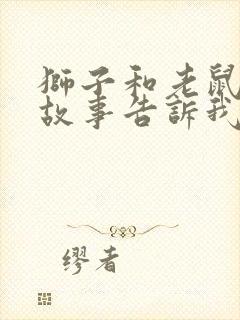 獅子和老鼠
故事告訴我
繆者